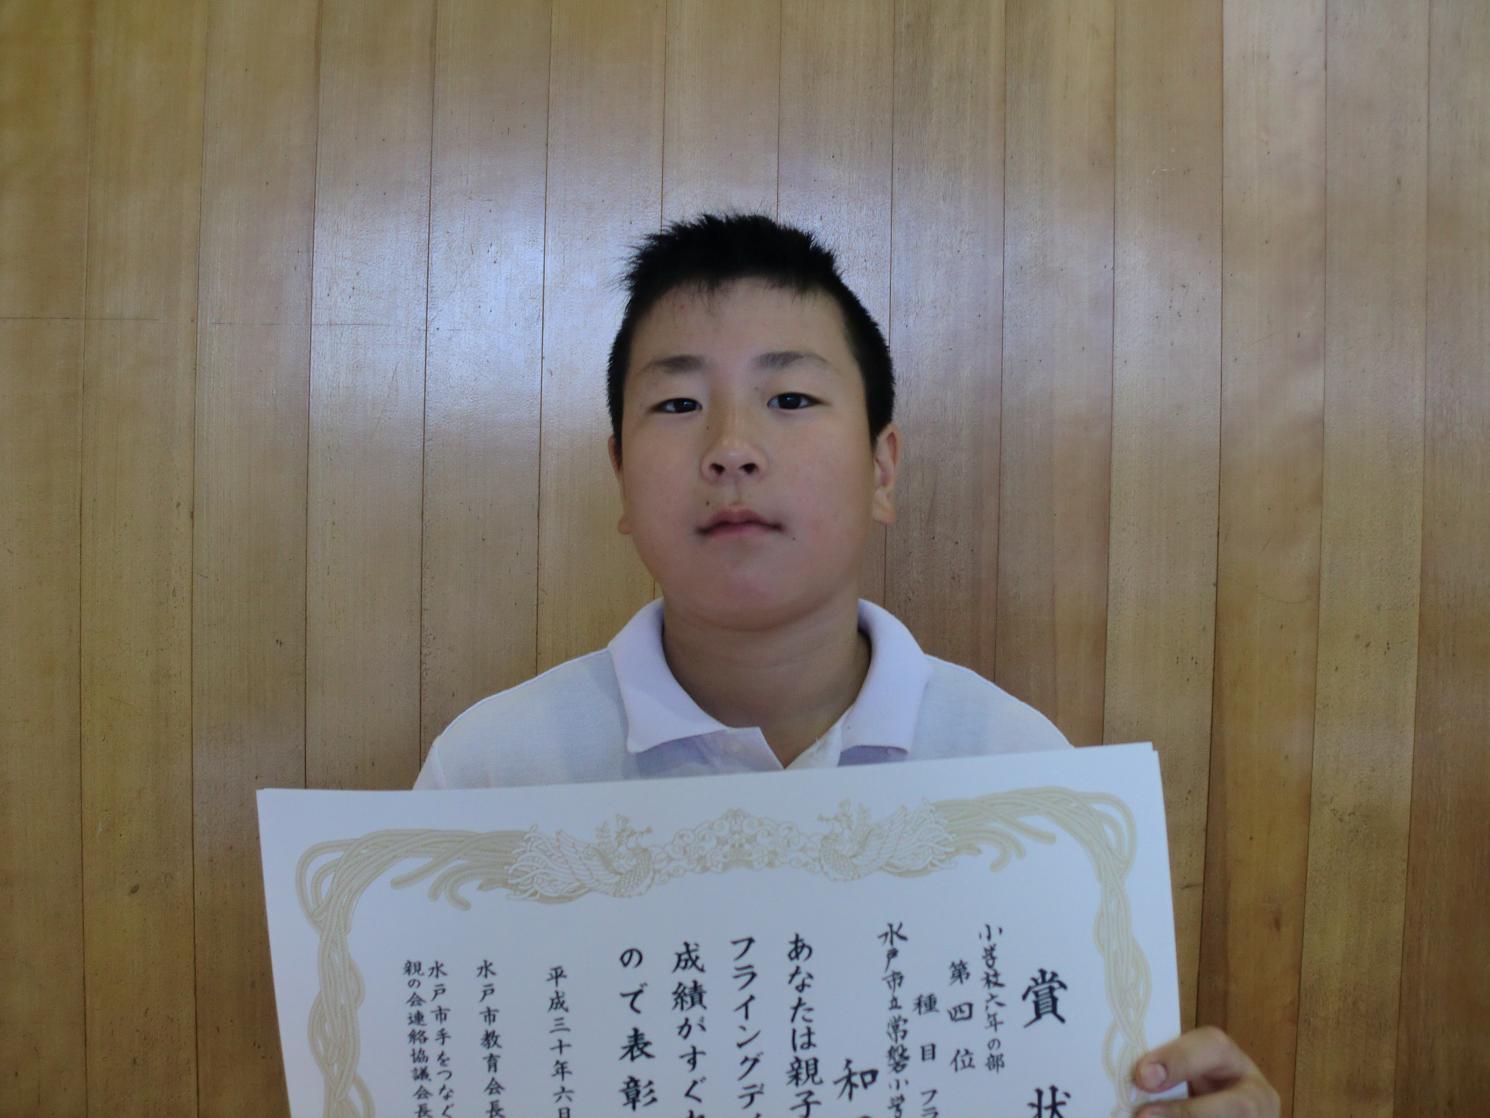 賞状
小学校六年の部
第四位
種目 フラ
水戸市立常磐小学
和
あなたは親子
フライングデ
成績がすぐ
ので表彰
平成三十年六月
水戸市教育会長
水戸市手をつなぐ
親の会連絡協議会長